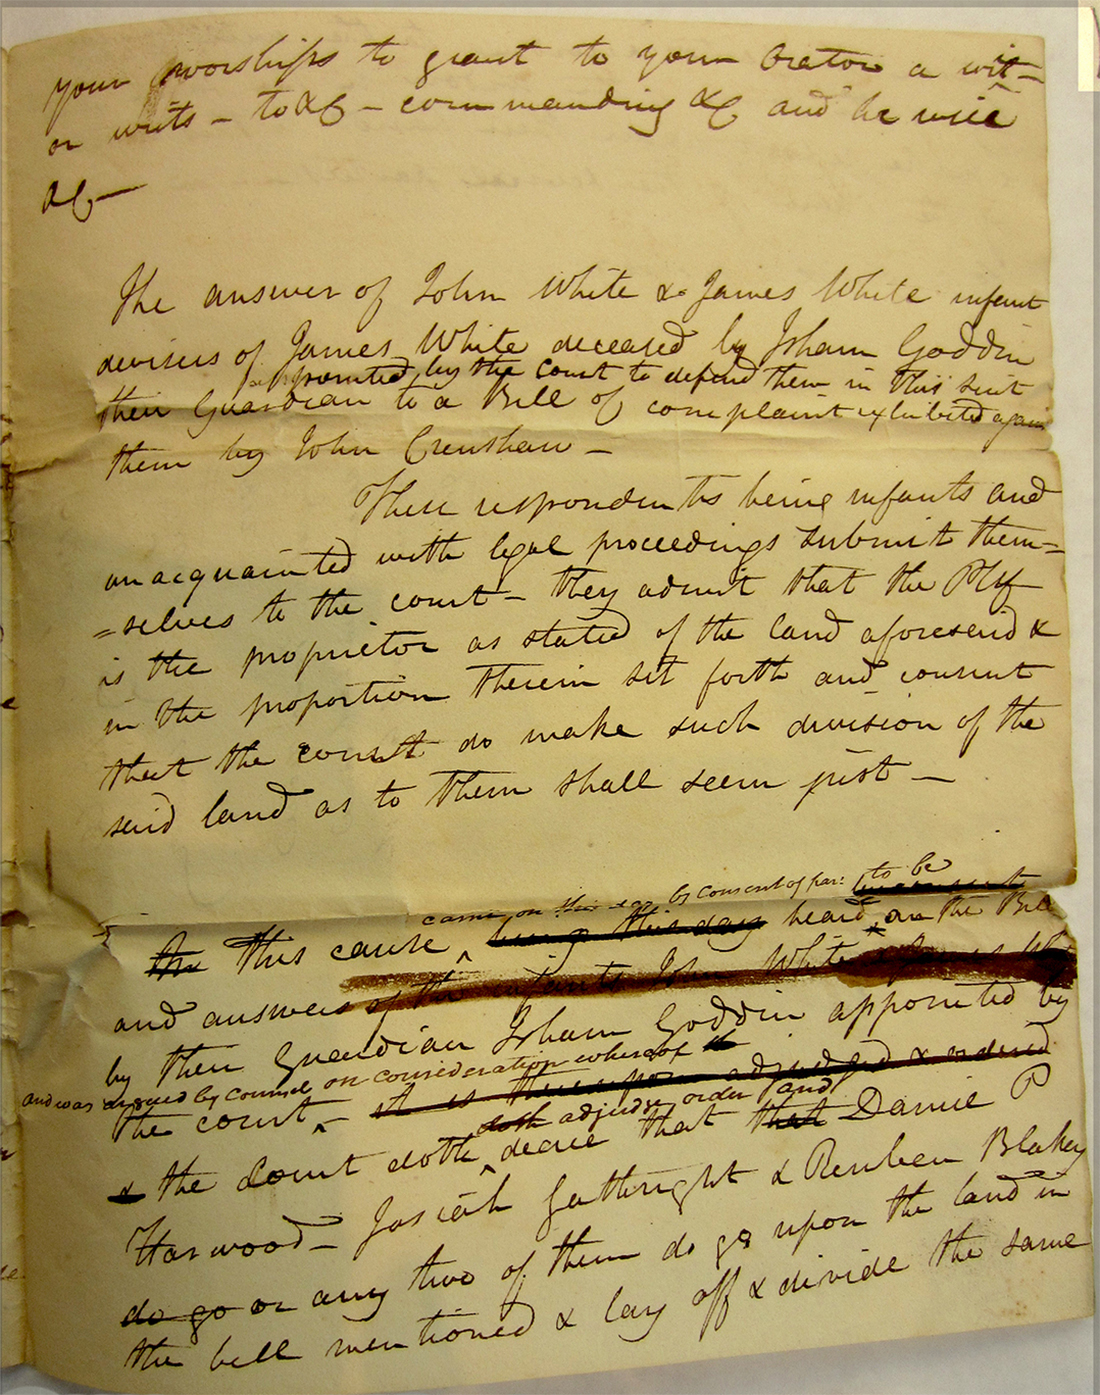 your worships to grant to your Orator a writ
or writs - to &C - commanding &C and he will
&C -
The answer of John White & James White infant
devisees of James White deceased by Isham Goddin
appointed by the Court to defend them in this suit
their Guardian to a Bill of complaint exhibited again
them by John Crenshaw -
These respondents being infants and
unacquainted with legal proceedings submit them=
=selves to the court - they admit that the Pltf
is the proprietor as stated of the land aforesaid &
in the proportion therein set forth and consent
that the court do make such division of the
said land as to them shall seem just -
came on this day by consent of par: to be
This cause being this day heard on the Bill
and answers of the infants John White & James White
by their Guardian Isham Goddin appointed by
and was argued by Counsel on consideration whereof
the court - it is thereupon adjudged & ordered
doth adjudge order and
& the Court doth decree that that Danie P
Harwood - Josiah Gathright & Reuben Blakey
do go or any two of them do go upon the land in
the bill mentioned & lay off & divide the same